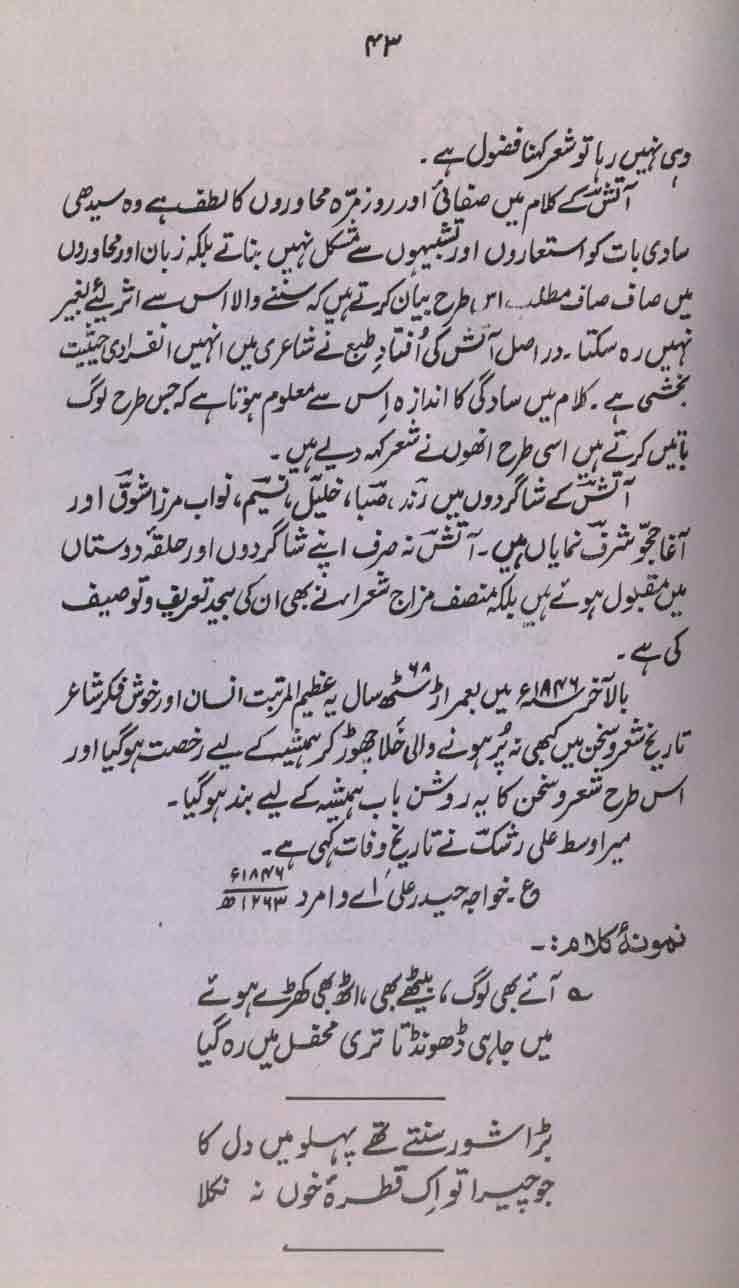 ۴۳
وہی نہیں رہا تو شعر کہنا فضول ہے ۔
آتش کے کلام میں صفائی اور روز مرّہ محاوروں کا لطف ہے وہ سیدھی
سادی بات کو استعاروں اور تشبیہوں سے مشکل نہیں بناتے بلکہ زبان اور محاوروں
میں صاف صاف مطلب اس طرح بیان کرتے ہیں کہ سننے والا اس سے اثر لئے بغیر
نہیں رہ سکتا ۔ دراصل آتش کی اُفتادِ طبع نے شاعری میں انہیں انفرادی حیثیت
بخشی ہے ۔ کلام میں سادگی کا اندازہ اِس سے معلوم ہوتا ہے کہ جس طرح لوگ
باتیں کرتے ہیں اسی طرح انھوں نے شعر کہہ دیے ہیں ۔
آتش کے شاگردوں میں رند، صبا، خلیل، نسیم، نواب مرزا شوق اور
آغا حجو شرف نمایاں ہیں ۔ آتش نہ صرف اپنے شاگردوں اور حلقۂ دوستاں
میں مقبول ہوئے ہیں بلکہ منصف مزاج شعراء نے بھی ان کی بیحد تعریف و توصیف
کی ہے ۔
بالآخر ۱۸۴۶ء میں بعمر اڑسٹھ ۶۸ سال یہ عظیم المرتبت انسان اور خوش فکر شاعر
تاریخ شعر و سخن میں کبھی نہ پُر ہونے والی خلا چھوڑ کر ہمیشہ کے لیے رخصت ہوگیا اور
اس طرح شعر و سخن کا یہ روشن باب ہمیشہ کے لیے بند ہوگیا ۔
میر اوسط علی رشک نے تاریخ وفات کہی ہے ۔
ع ۔ خواجہ حیدر علی اے وا مرد ۱۸۴۶ء ۱۲۶۳ھ
نمونۂ کلام :۔
؎ آئے بھی لوگ، بیٹھے بھی، اٹھ بھی کھڑے ہوئے
میں جا ہی ڈھونڈتا تری محفل میں رہ گیا
بڑا شور سنتے تھے پہلو میں دل کا
جو چیرا تو اِک قطرۂ خوں نہ نکلا